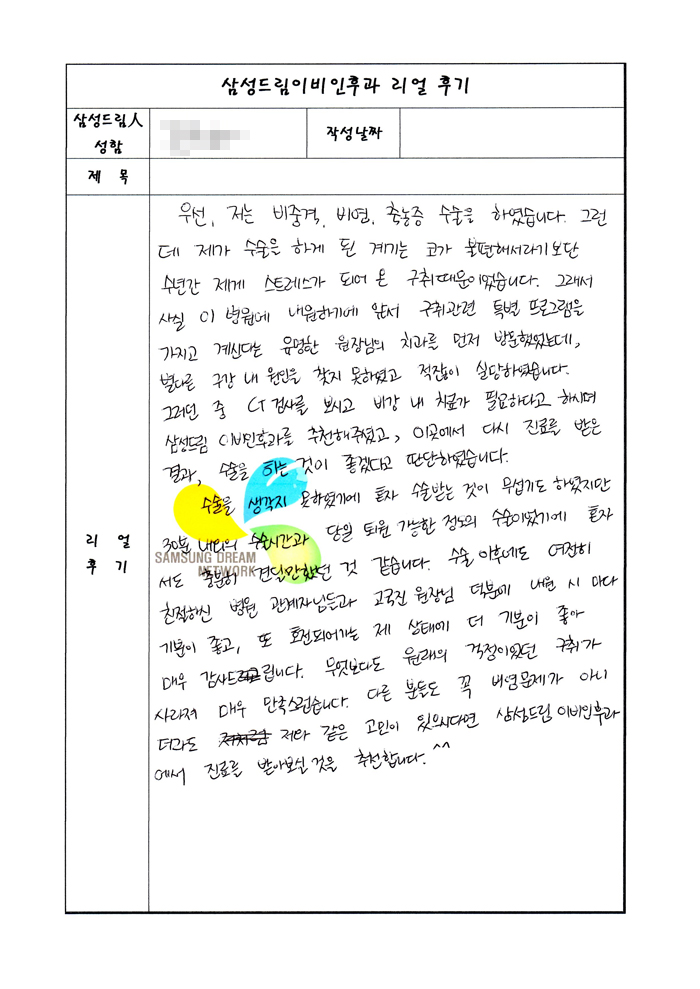 삼성드림이비인후과 리얼 후기
삼성드림人
성함
작성날짜
제 목
리 얼
후 기
우선, 저는 비중격, 비염, 축농증 수술을 하였습니다. 그런
데 제가 수술을 하게 된 계기는 코가 불편해서라기보단
수년간 제게 스트레스가 되어 온 구취때문이었습니다. 그래서
사실 이 병원에 내원하기에 앞서 구취관련 특별 프로그램을
가지고 계신다는 유명한 원장님의 치과를 먼저 방문했었는데,
별다른 구강 내 원인을 찾지 못하였고 적잖이 실당하였습니다.
그러던 중 CT 검사를 보시고 비강 내 치료가 필요하다고 하시며
삼성드림 이비인후과를 추천해주셨고, 이곳에서 다시 진료를 받은
결과, 수술을 하는 것이 좋겠다고 판단하였습니다.
수술을 생각지 못하였기에 혼자 수술받는 것이 무섭기도 하였지만
30분 내외의 수술시간과 당일 퇴원 가능한 정도의 수술이었기에 혼자
서도 충분히 견딜만했던 것 같습니다. 수술 이후에도 여전히
친절하신 병원 관계자님들과 고국진 원장님 덕분에 내원 시 마다
기분이 좋고, 또 호전되어가는 제 상태에 더 기분이 좋아
매우 감사드립니다. 무엇보다도 원래의 걱정이었던 구취가
사라져 매우 만족스럽습니다. 다른 분들도 꼭 비염문제가 아니
더라도 저와 같은 고민이 있으시다면 삼성드림 이비인후과
에서 진료를 받아보실 것을 추천합니다.^^
SAMSUNG DREAM
NETWORK